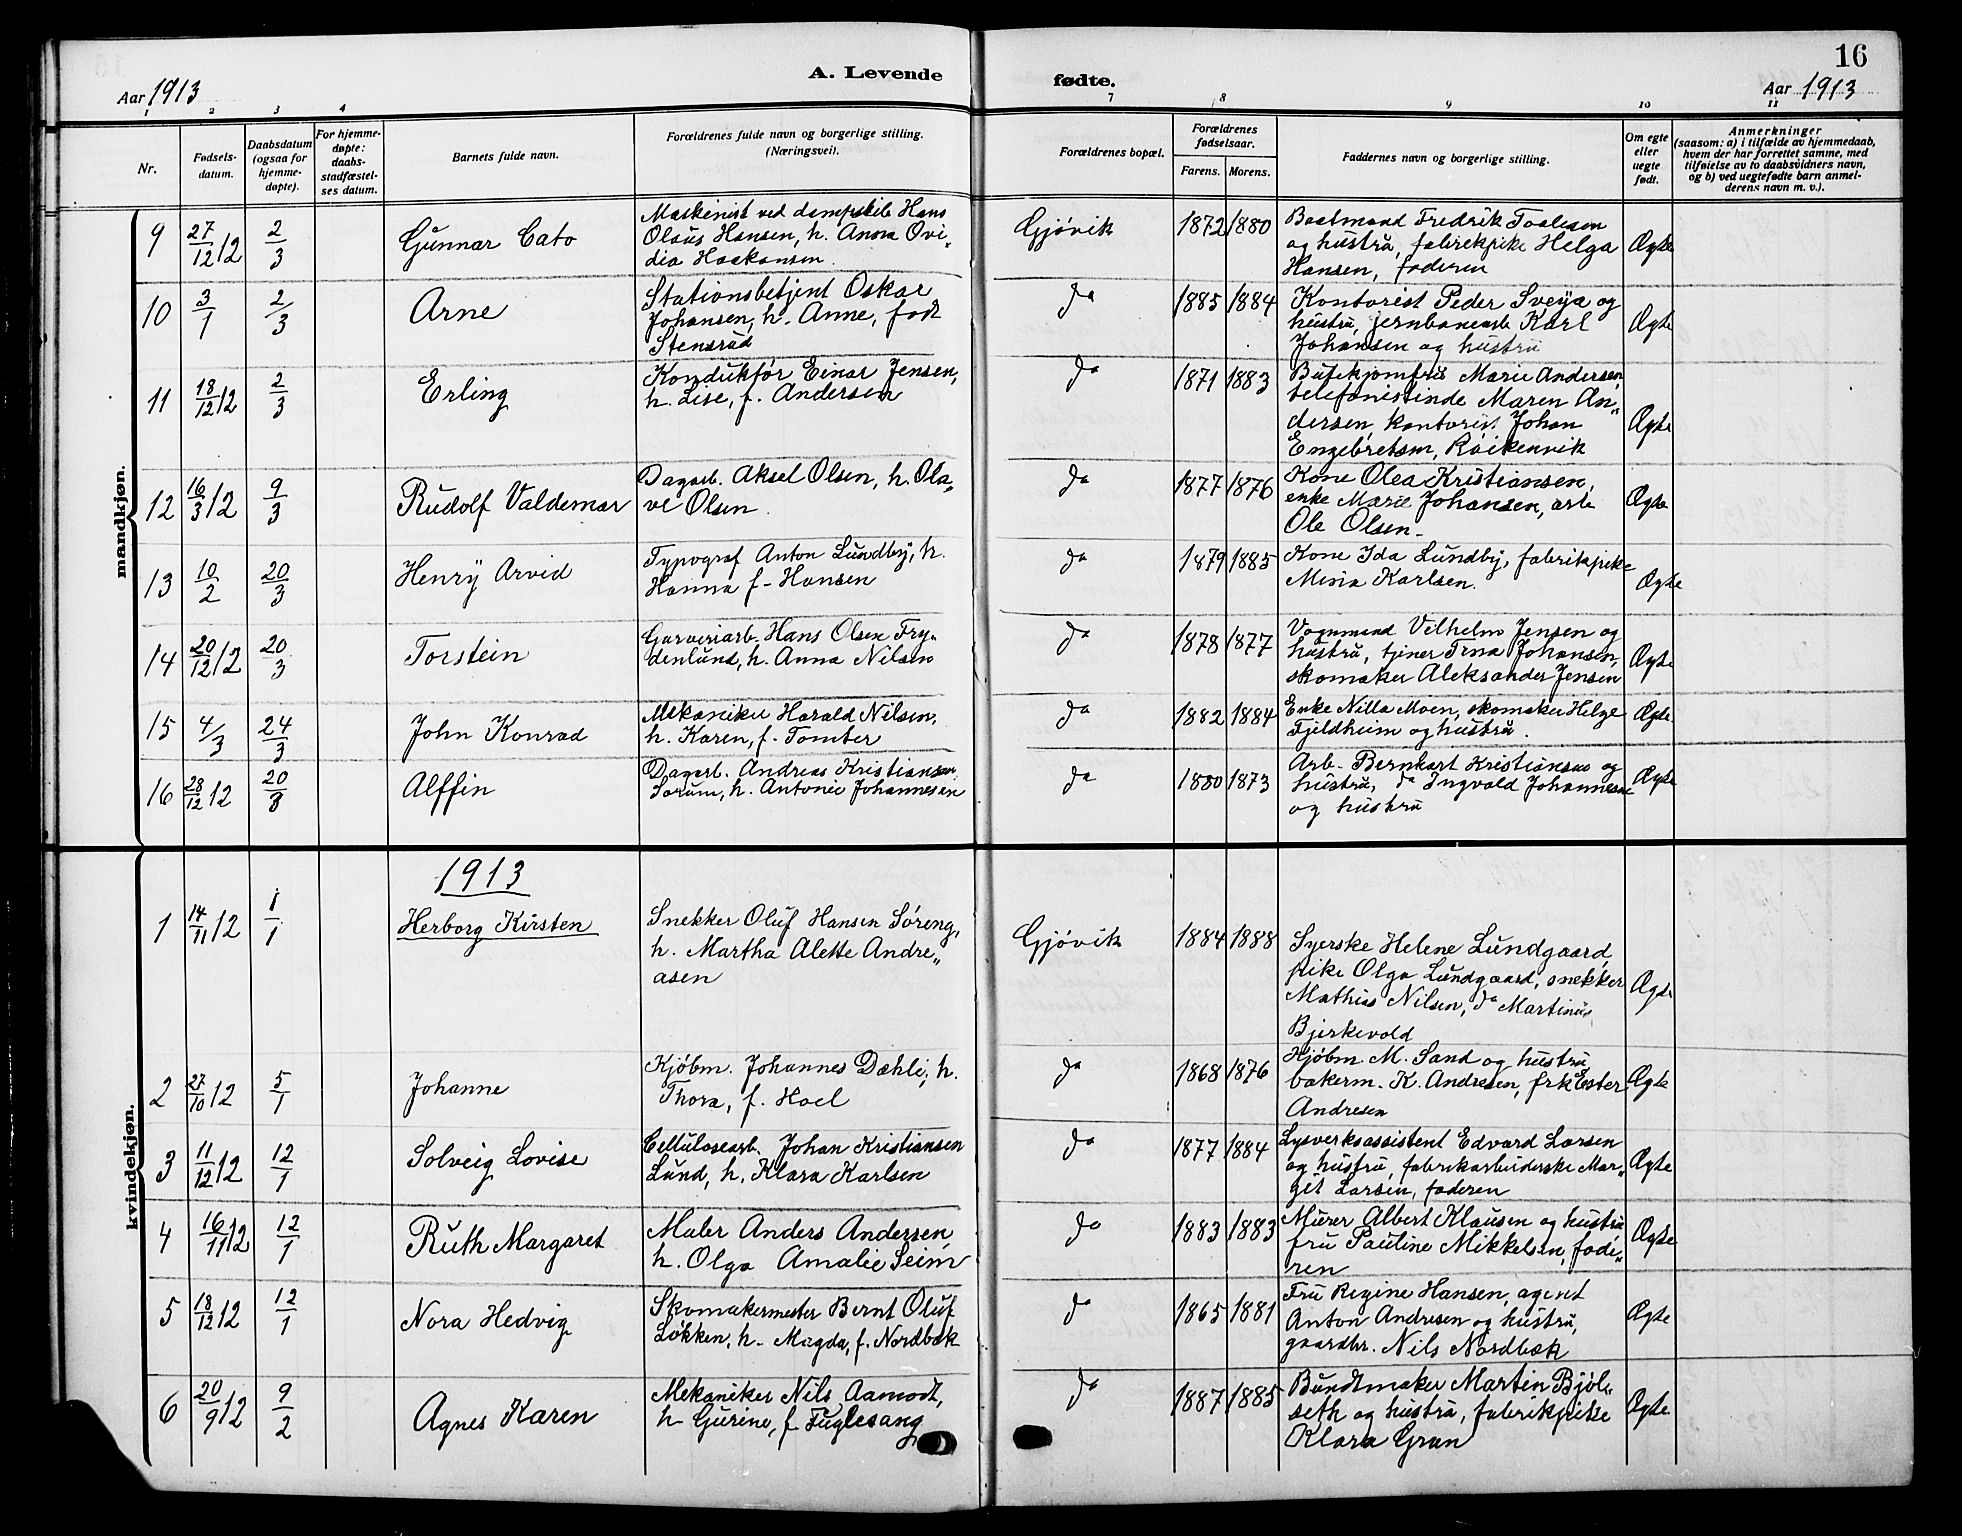 16
A. Levende fødte.
Aar 1913
Aar 1913
1 2 3 4 7 8 9 10 11
Nr.
Fødsels-
datum.
Daabsdatum
(ogsaa for
hjemme-
døpte).
For hjemme-
døpte:
daabs-
stadfæstel-
ses datum.
Barnets fulde navn.
Forældrenes fulde navn og borgerlige stilling.
(Næringsvei).
Forældrenes bopæl.
Forældrenes
fødselsaar.
Farens. Morens.
Faddernes navn og borgerlige stilling.
Om egte
eller
uegte
født.
Anmerkninger
(saasom: a) i tilfælde av hjemmedaab,
hvem der har forrettet samme, med
tilføielse av to daabsvidners navn,
og b) ved uegtefødte barn anmel-
derens navn m. v.).
mandkjøn.
9 27/12 12 2/3 Gunnar Cato
Maskinist ved dampskib Hans
Olaus Hansen, h. Anna Ovi-
dia Haakansen.
Gjøvik 1872 1880
Baatmand Fredrik Toalesen
og hustru, fabrikpike Helga
Hansen, faderen
Ægte
10 3/1 2/3 Arne
Stationsbetjent Oskar
Johansen, h. Anne, født
Stensrud
do 1885 1884
Kontorist Peder Sveya og
hustru, jernbanearb Karl
Johansen og hustru
Ægte
11 18/12 12 2/3 Erling
Konduktør Einar Jensen,
h. Lise, f. Andersen
do 1871 1883
Bufekjomfru Marie Andersen,
telefonistinde Maren An„
dersen, kontorist Johan
Engebretsen, Røikenvik
Ægte
12 16/3 12 9/3 Rudolf Valdemar
Dagarb. Aksel Olsen, h. Ola„
ve Olsen.
do 1877 1876
Kone Olea Kristiansen,
enke Marie Johansen, arb
Ole Olsen.
Ægte
13 10/2 20/3 Henry Arvid
Typograf Anton Lundby, h.
Hanna f. Hansen
do 1879 1885
Kone Ida Lundby, fabrikpike
Mina Karlsen.
Ægte
14 20/12 12 20/3 Torstein
Garveriarb. Hans Olsen Fry„
denlund, h. Anna Nilsen
do 1878 1877
Vognmand Vilhelm Jensen og
hustru, tjener Trna Johansen,
skomaker Aleksander Jensen
Ægte
15 4/3 24/3 John Konrad
Mekaniker Harald Nilsen,
h. Karen, f. Tomter
do 1882 1884
Enke Nilla Moen, skomaker Helge
Fjeldheim og hustru.
Ægte
16 28/12 12 20/3 Alffin
Dagarb. Andreas Kristiansen
Sorum, h. Antonie Johannesen
do 1880 1873
Arb. Bernhart Kristiansen og
hustru, do Ingvald Johannesen
og hustru
Ægte
kvindekjøn.
1913
1 14/11 12 1/1 Herborg Kirsten
Snekker Oluf Hansen Søreng,
h. Martha Alette Andre„
asen
Gjøvik 1884 1888
Syerske Helene Lundgaard,
pike Olga Lundgaard, snekker
Mathias Nilsen, do Martinus
Bjerkevold
Ægte
2 27/10 12 5/1 Johanne
Kjøbm. Johannes Dæhli, h.
Thora, f. Hoel
do 1868 1876
Kjøbm. M. Sand og hustru
bakerm. K. Andresen, frk Ester
Andresen
Ægte
3 11/12 12 12/1 Solveig Lovise
Cellulosearb. Johan Kristiansen
Lund, h. Klara Karlsen
do 1877 1884
Lysverksassistent Edvard Larsen
og hustru, fabrikarbeiderske Mar„
git Larsen, faderen
Ægte
4 16/11 12 12/1 Ruth Margaret
Maler Anders Andersen,
h. Olga Amalie Seim
do 1883 1883
Murer Albert Klausen og hustru
fru Pauline Mikkelsen, fade„
ren
Ægte
5 18/12 12 12/1 Nora Hedvig
Skomakermester Bernt Oluf
Løkken, h. Magda, f. Nordbæk
do 1865 1881
Fru Regine Hansen, agent
Anton Andresen og hustru,
gaardbr. Nils Nordbæk
Ægte
6 20/9 12 9/2 Agnes Karen
Mekaniker Nils Aamodt,
h Gurine, f Fuglesang
do 1887 1885
Bundtmaker Martin Bjøl„
seth og hustru, fabrikpike
Klara Gran
Ægte